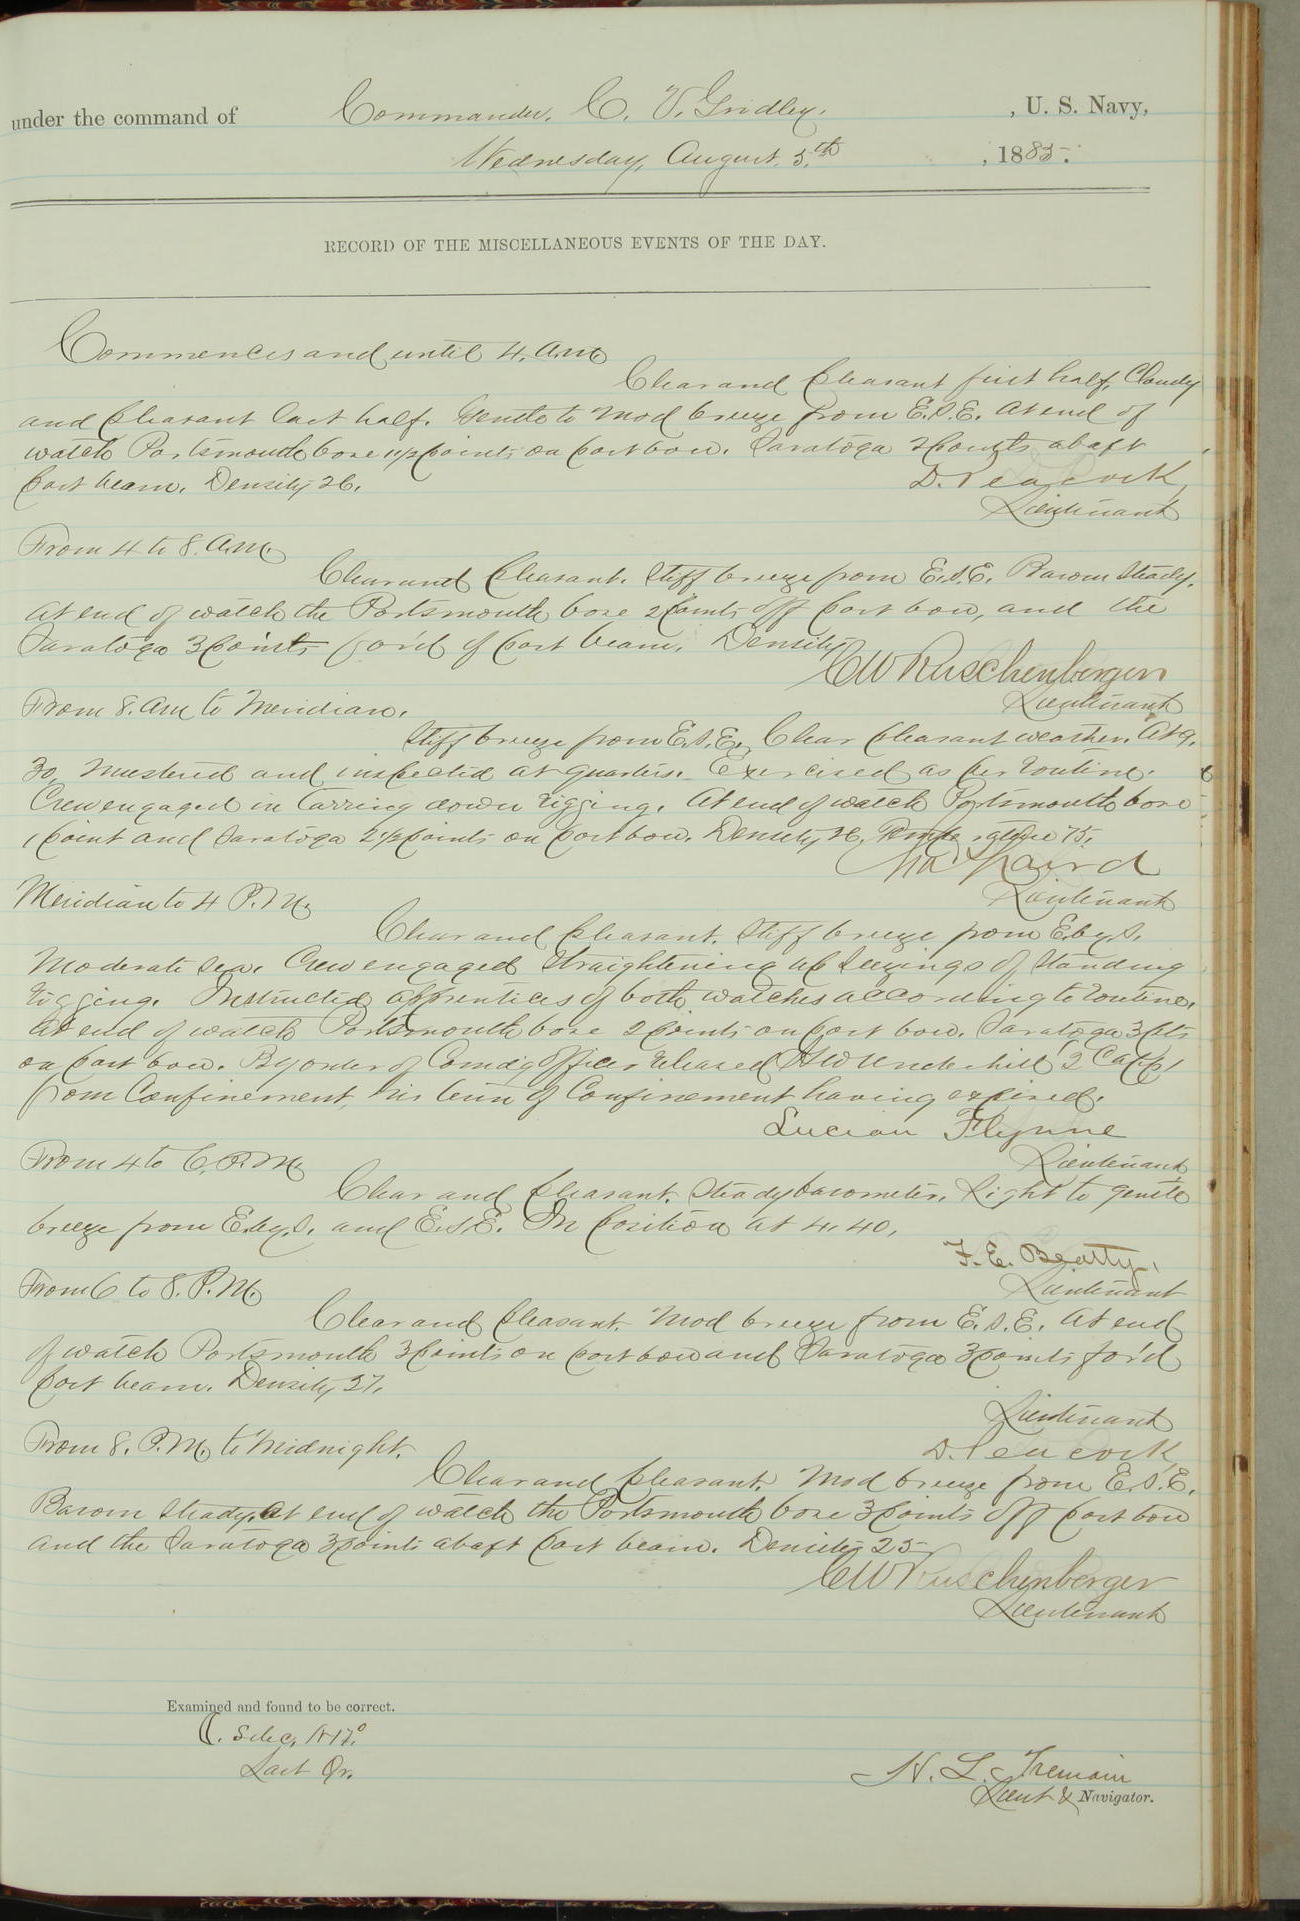 under the command of Commander, C. V. Gridley, , U. S. Navy,
Wednesday, August. 5.th , 1885.
RECORD OF THE MISCELLANEOUS EVENTS OF THE DAY.
Commences and until 4. a.m.
Clear and pleasant first half, Cloudy
and pleasant last half. Gentle to mod breeze from E.S.E. At end of
watch Portsmouth bore points on port bow. Saratoga 2 points abaft
port beam. Density 26.
D. Peacock,
Lieutenant
From 4 to 8. a.m.
Clear and pleasant. Stiff breeze from E.S.E. Barom steady.
At end of watch the Portsmouth bore 2 points off port bow, and the
Saratoga 3 points for'd of port beam. Density
CW Ruschenberger
Lieutenant
From 8. am to Meridian.
Stiff breeze from E.S.E. Clear pleasant weather. At 9.
30, mustered and inspected at quarters. Exercised as per routine.
Crew engaged in tarring down rigging. At end of watch Portsmouth bore
1 point and Saratoga 2 1/2 points on port bow. Density 26, 75.
Laird
Lieutenant
Meridian to 4 P.M.
Clear and pleasant. Stiff breeze from E.by.S.
Moderate sea. Crew engaged straightening up seizings of standing
rigging. Instructed apprentices of both watches according to routine.
At end of watch Portsmouth bore 2 points on port bow. Saratoga 3 pts
on port bow. By order of Comdg Officer released Underhill 2
from Confinement, his term of Confinement having expired.
Lucian Flynne
Lieutenant
From 4 to 6. P.M.
Clear and pleasant. Steady barometer. Light to gentle
breeze from E.by.S. and E.S.E. In position at 4.40.
F. E. Beatty,
Lieutenant
From 6 to 8. P.M.
Clear and pleasant. Mod breeze from E.S.E. At end
of watch Portsmouth 3 points on port bow and Saratoga 3 points for'd
port beam. Density 27.
Lieutenant
D. Peacock
From 8. P.M. to Midnight.
Clear and pleasant. Mod breeze from E.S.E.
Barom steady. At end of watch the Portsmouth bore 3 points off port bow
and the Saratoga 3 points abaft port beam. Density 25
CW Ruschenberger
Lieutenant
Examined and found to be correct.
Last Qr.
H. L. Tremain
Lieut & Navigator.